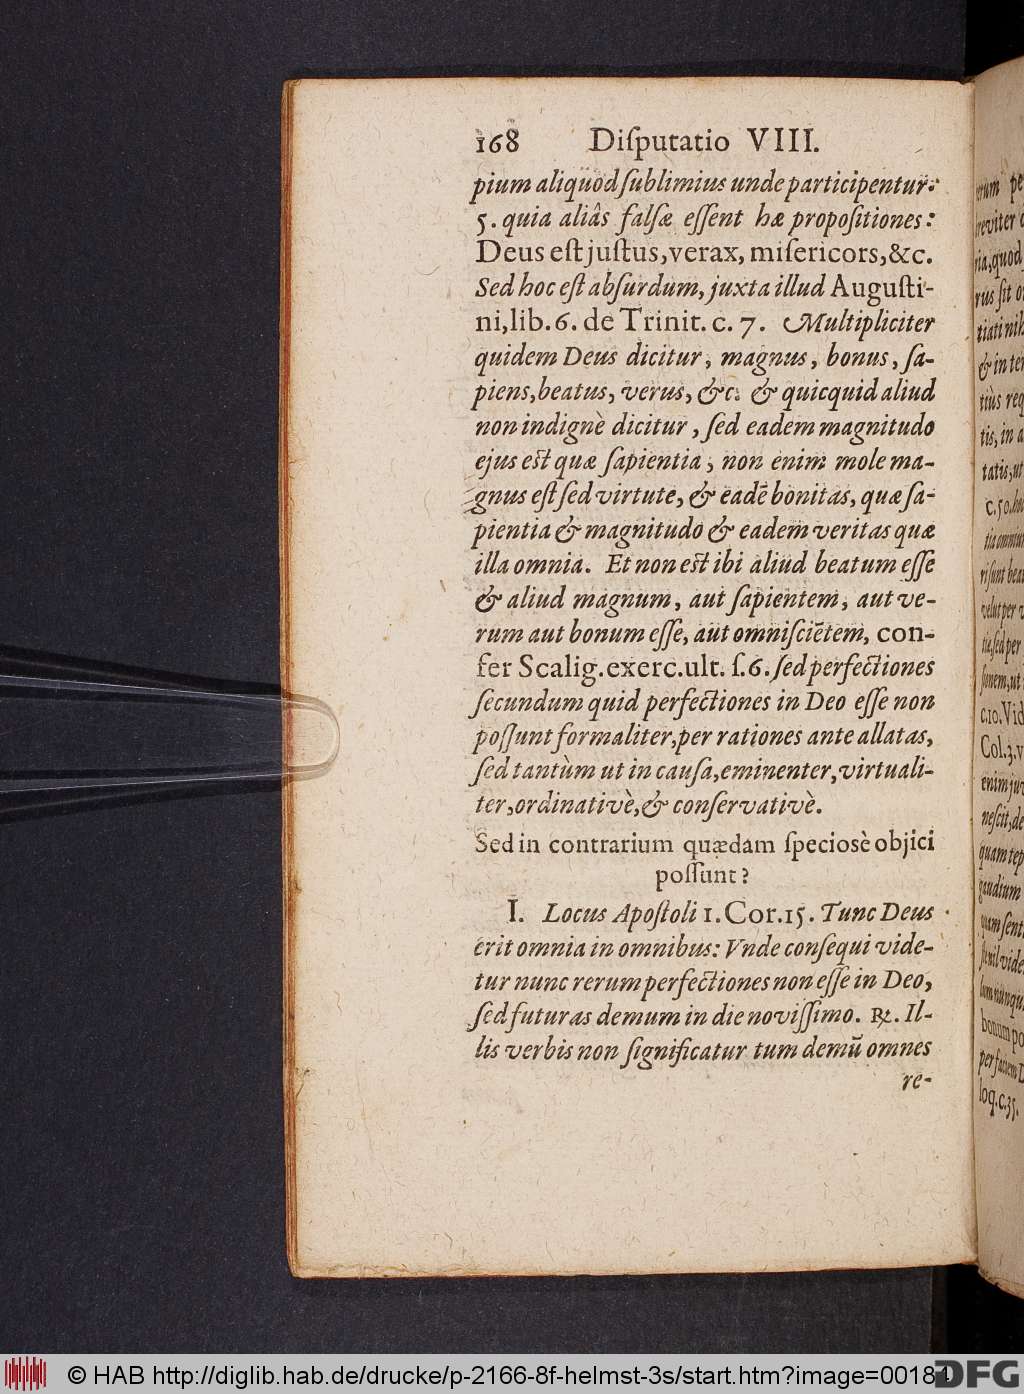 168 Diſputatio VIII.
pium aliquod ſublimius unde participentur:
5. quia aliâs falſæ eſſent hæ propoſitiones:
Deus eſt juſtus, verax, miſericors, &c.
Sed hoc eſt abſurdum, juxta illud Auguſti-
ni, lib. 6. de Trinit. c. 7. Multipliciter
quidem Deus dicitur, magnus, bonus, ſa-
piens, beatus, verus, &c. & quicquid aliud
non indignè dicitur, ſed eadem magnitudo
ejus eſt quæ ſapientia, non enim mole ma-
gnus eſt ſed virtute, & eadē bonitas, quæ ſa-
pientia & magnitudo & eadem veritas quæ
illa omnia. Et non eſt ibi aliud beatum eſſe
& aliud magnum, aut ſapientem, aut ve-
rum aut bonum eſſe, aut omniſciētem, con-
fer Scalig. exerc. ult. ſ. 6. ſed perfectiones
ſecundum quid perfectiones in Deo eſſe non
poſſunt formaliter, per rationes ante allatas,
ſed tantùm ut in cauſa, eminenter, virtuali-
ter, ordinativè, & conſervativè.
Sed in contrarium quædam ſpeciosè objici
poſſunt?
I. Locus Apoſtoli 1. Cor. 15. Tunc Deus
erit omnia in omnibus: Vnde conſequi vide-
tur nunc rerum perfectiones non eſſe in Deo,
ſed futuras demum in die noviſſimo. ℞. Il-
lis verbis non ſignificatur tum demū omnes
re-
rum pe
breviter
ria, quòd
rùs ſit
tiati nih
& in
tiùs req
tis, in a
tatis, ut
c. 50.
tia omnium
ri ſunt bea
velut per v
tiæ, ſed per
c. 10. Vid
Col. 3. v
enim ju
neſcit, de
quam
gaudium
quam ſenti
bonum po
per faciem
loq. c. 35.
© HAB http://diglib.hab.de/drucke/p-2166-8f-helmst-3s/start.htm?image=00184
DFG